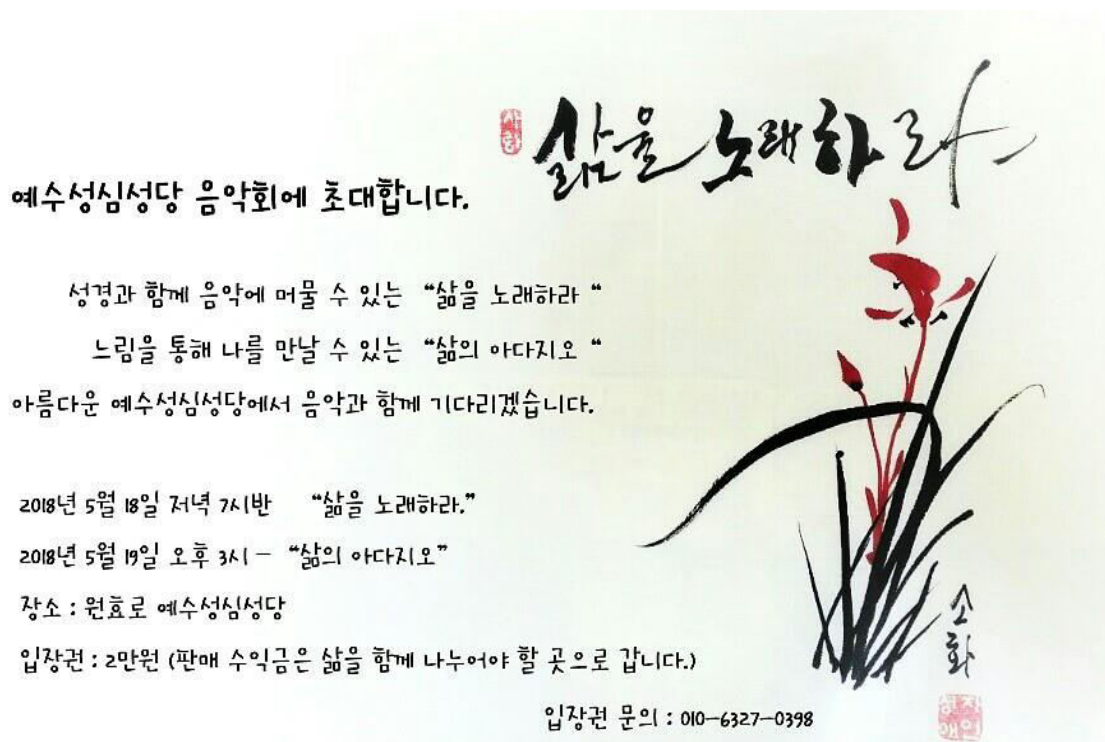 사랑
삶을 노래하라
예수성심성당 음악회에 초대합니다.
성경과 함께 음악에 머물 수 있는 “삶을 노래하라 “
느림을 통해 나를 만날 수 있는 “삶의 아다지오 “
아름다운 예수성심성당에서 음악과 함께 기다리겠습니다.
2018년 5월 18일 저녁 7시반 “삶을 노래하라.”
2018년 5월 19일 오후 3시 – “삶의 아다지오”
장소 : 원효로 예수성심성당
입장권 : 2만원 (판매 수익금은 삶을 함께 나누어야 할 곳으로 갑니다.)
소화
입장권 문의 : 010-6327-0398